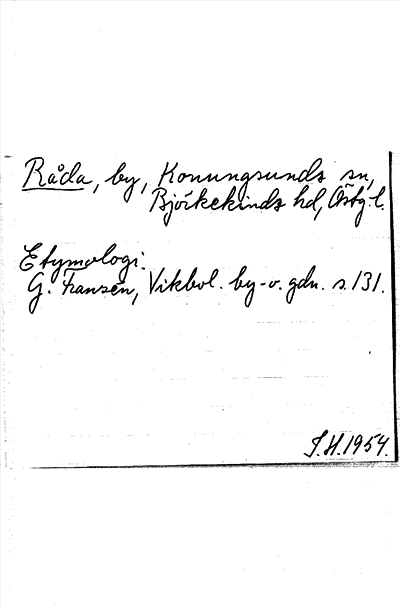 Råda, by, Konungsunds sn,
Björkekinds hd, Östg. l.
Etymologi.
G. Franzén, Vikbol. by- o. gdn. s. 131.
S.H. 1954.